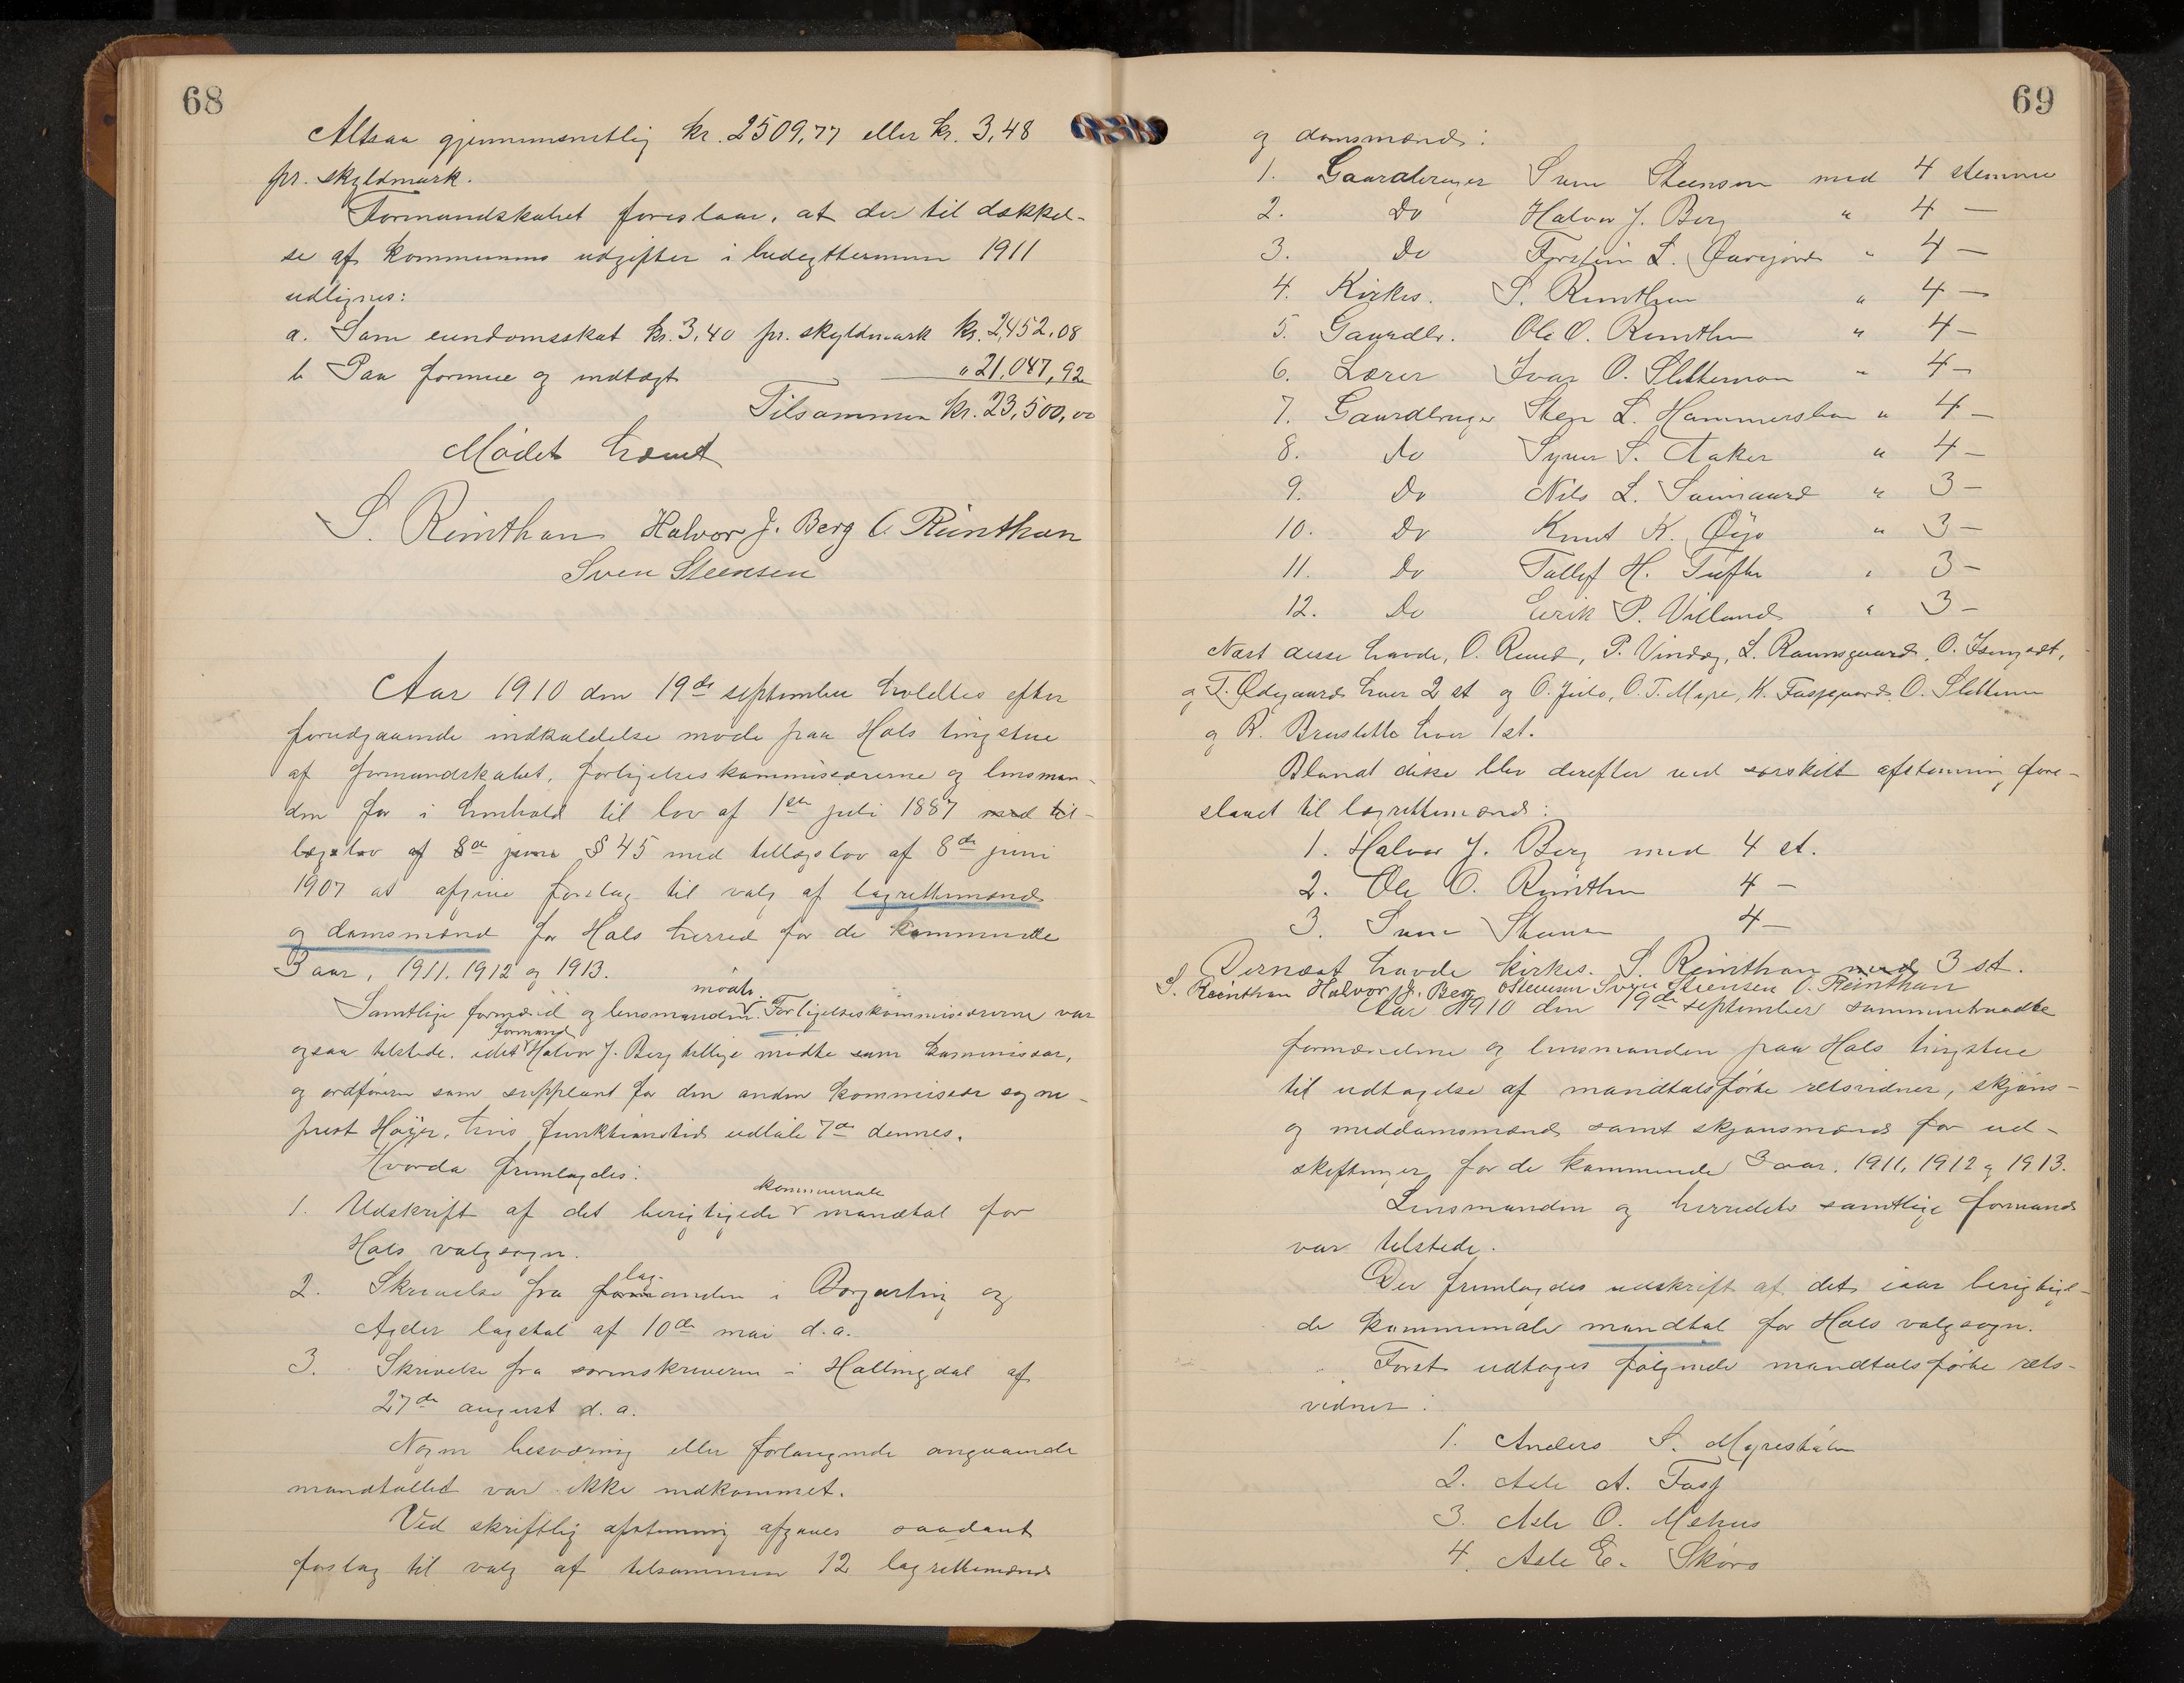 68
Altsaa gjennemsnitlig kr. 2509,77 eller kr. 3,48
pr. skyldmark.
Formandskabet foreslaar, at der til dækkel-
se af kommunens udgifter i budgettermin 1911
udlignes:
a. Som eiendomsskat kr. 3,40 pr. skyldmark kr. 2,452,08
b Paa formue og indtægt " 21,047,92
Tilsammen kr. 23,500,00
Mødet hævet
S. Reinthon Halvor J. Berg O. Reinthon
Sven Steensen
Aar 1910 den 19de september holdtes efter
forudgaaende indkaldelse møde paa Hols tingstue
af formandskabet, forligelseskommissærerne og lensman-
den for i henhold til lov af 1ste juli 1887 med til-
lægslov af 8de juni § 45 med tillægslov af 8de juni
1907 at afgive forslag til valg af lagrettemænd
og domsmænd for Hols herred for de kommende
3 aar, 1911. 1912 og 1913.
mødte.
Samtlige formænd og lensmanden. Forligelseskommissærerne var
formand
ogsaa tilstede. idet Halvor J. Berg tillige mødte som kommissær,
og ordføreren som suppleant for den anden kommissær sogne-
prest Høyer, hvis funktionstid udløb 7de dennes.
Hvorda fremlagdes:
kommunale
1. Udskrift af det berigtigede mandtal for
Hols valgsogn.
lag-
2. Skrivelse fra formanden i Borgarting og
Agder lagstol af 10de mai d.a.
3. Skrivelse fra sorenskriveren i Hallingdal af
27de august d.a.
Nogen besværing eller forlangende angaaende
mandtallet var ikke indkommet.
Ved skriftlig afstemning afgaves saadant
forslag til valg af tilsammen 12 lagrettemænd
69
og domsmænd:
1. Gaardbruger Sven Steensen med 4 stemmer
2. Do Halvor J. Berg " 4 —
3. Do Torstein L. " 4 —
4. Kirkes. S. Reinthon " 4 —
5. Gaardbr. Ole O. Reinthon " 4 —
6. Lærer Ivar O. Slettemoen " 4 —
7. Gaardbruger Sten L. Hammersbøen " 4 —
8. do Syver S. Aaker " 4 —
9. Do Nils L. Sunngaard " 3 —
10. Do Knut K. Øyo " 3 —
11. Do Tollef H. Tufte " 3 —
12. Do Eirik P. Villand " 3 —
Næst disse havde, O. Ruud, P. Vindeg, L. Raunsgaard, O.
og T. Ødegaard hver 2 st og O. Juto, O. T. Myre, K. O. Slettemoen
og R. Bruslette hver 1 st.
Blandt disse blev derefter ved særskilt afstemning fore-
slaaet til lagrettemænd:
1. Halvor J. Berg med 4 st.
2. Ole O. Reinthon 4 —
3. Sven Steensen 4 —
Dernæst havde kirkes. S. Reinthon med 3 st.
S. Reinthon Halvor J. Berg OSteensen Sven Steensen O. Reinthon
Aar 1910 den 19de september sammentraadte
formændene og lensmanden paa Hols tingstue
til udtagelse af mandtalsførte retsvidner, skjøns-
og meddomsmænd samt skjønsmænd for ud-
skiftninger for de kommende 3 aar. 1911, 1912 og 1913.
Lensmanden og herredets samtlige formænd
var tilstede.
Der fremlagdes udskrift af det iaar berigtige-
de kommunale mandtal for Hols valgsogn.
Først udtoges følgende mandtalsførte rets-
vidner:
1. Anders S. Myrestølen
2. Asle A.
3. Asle O. Mehus
4. Asle E. Skøro